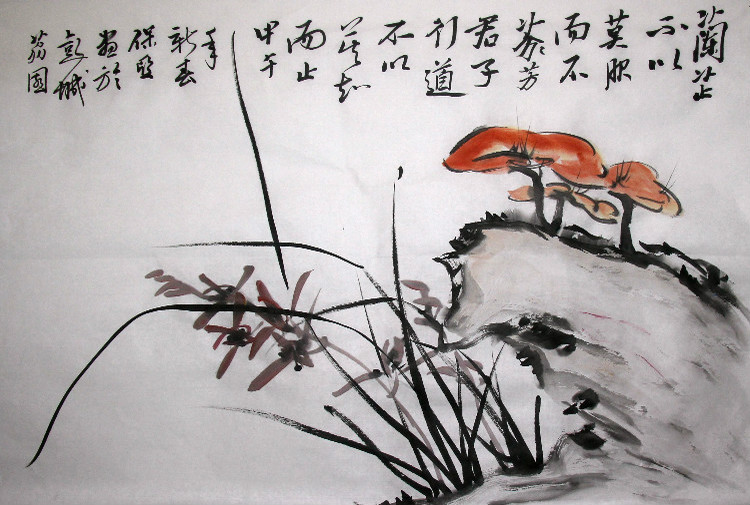 蘭芷
不以
莫服
而不
芬芳
君子
行道
不以
莫知
而止
甲午
年
新春
保
画於
彭城
園